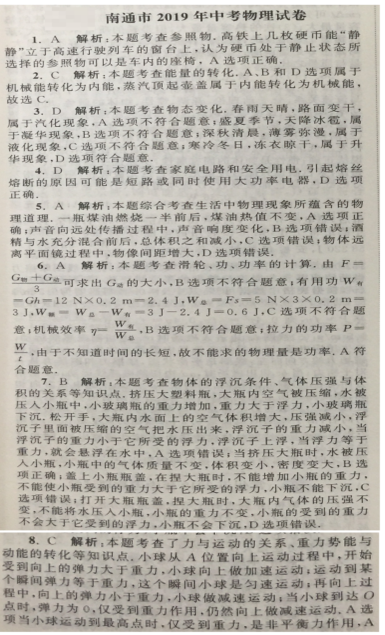 南通市 2019 年中考物理试卷
1. A 解析:本题考查参照物. 高铁上几枚硬币能“静
静”立于高速行驶列车的窗台上,认为硬币处于静止状态所
选择的参照物可以是车内的座椅,A 选项正确.
2. C 解析:本题考查能量的转化. A、B 和 D 选项属于
机械能转化为内能,蒸汽顶起壶盖属于内能转化为机械能,
故选 C.
3. D 解析:本题考查物态变化. 春雨天晴,路面变干,
属于汽化现象,A 选项不符合题意;盛夏季节,天降冰雹,属
于凝华现象,B 选项不符合题意;深秋清晨,薄雾弥漫,属于
液化现象,C 选项不符合题意;寒冷冬日,冻衣晾干,属于升
华现象,D 选项符合题意.
4. D 解析:本题考查家庭电路和安全用电. 引起熔丝
熔断的原因可能是短路或同时使用大功率电器,D 选项
正确.
5. A 解析:本题综合考查生活中物理现象所蕴含的物
理道理. 一瓶煤油燃烧一半前后,煤油热值不变,A 选项正
确;声音向远处传播过程中,声音响度变化,B 选项错误;酒
精与水充分混合前后,总体积之和减小,C 选项错误;物体远
离平面镜过程中,物像间距增大,D 选项错误.
6. A 解析:本题考查滑轮、功、功率的计算. 由 F=
(G物+G动)/3 可求出 G动 的大小,B 选项不符合题意;有用功 W有
=Gh=12 N×0.2 m=2.4 J,W总=Fs=5 N×3×0.2 m=
3 J,W额=W总-W有=3 J-2.4 J=0.6 J,C 选项不符合题
意;机械效率 η=W有/W总,B 选项不符合题意;拉力的功率 P=
W/t,由于不知道时间的长短,故不能求的物理量是功率. A 符
合题意.
7. B 解析:本题考查物体的浮沉条件、气体压强与体
积的关系等知识点. 挤压大塑料瓶,大瓶内空气被压缩,水被
压入小瓶中,小玻璃瓶的重力增加,重力大于浮力,小玻璃瓶
下沉. 松开手,大瓶内水面上的空气体积增大,压强减小,浮
沉子里面被压缩的空气把水压出来,浮沉子的重力减小,当
浮沉子的重力小于它所受的浮力,浮沉子上浮,当浮力等于
重力,就会悬浮在水中,A 选项错误;当挤压大瓶时,水被压
入小瓶,小瓶中的气体质量不变,体积变小,密度变大,B 选
项正确;盖上小瓶瓶盖,在捏大瓶时,不能增加小瓶的重力,
不能使小瓶受到的重力大于它所受的浮力,小瓶不能下沉,C
选项错误;打开大瓶瓶盖,捏大瓶时,大瓶内气体的压强不
变,不能将水压入小瓶,小瓶的重力不变,小瓶的受到的重力
不会大于它受到的浮力,小瓶不会下沉,D 选项错误.
8. C 解析:本题考查了力与运动的关系、重力势能与
动能的转化等知识点. 小球从 A 位置向上运动过程中,开始
受到向上的弹力大于重力,小球向上做加速运动;运动到某
个瞬间弹力等于重力,这个瞬间小球是匀速运动;再向上过
程中,向上的弹力小于重力,小球做减速运动;当小球到达 O
点时,弹力为 0,仅受到重力作用,仍然向上做减速运动. A 选
项当小球运动到最高点时,仅受到重力,是非平衡力作用,A